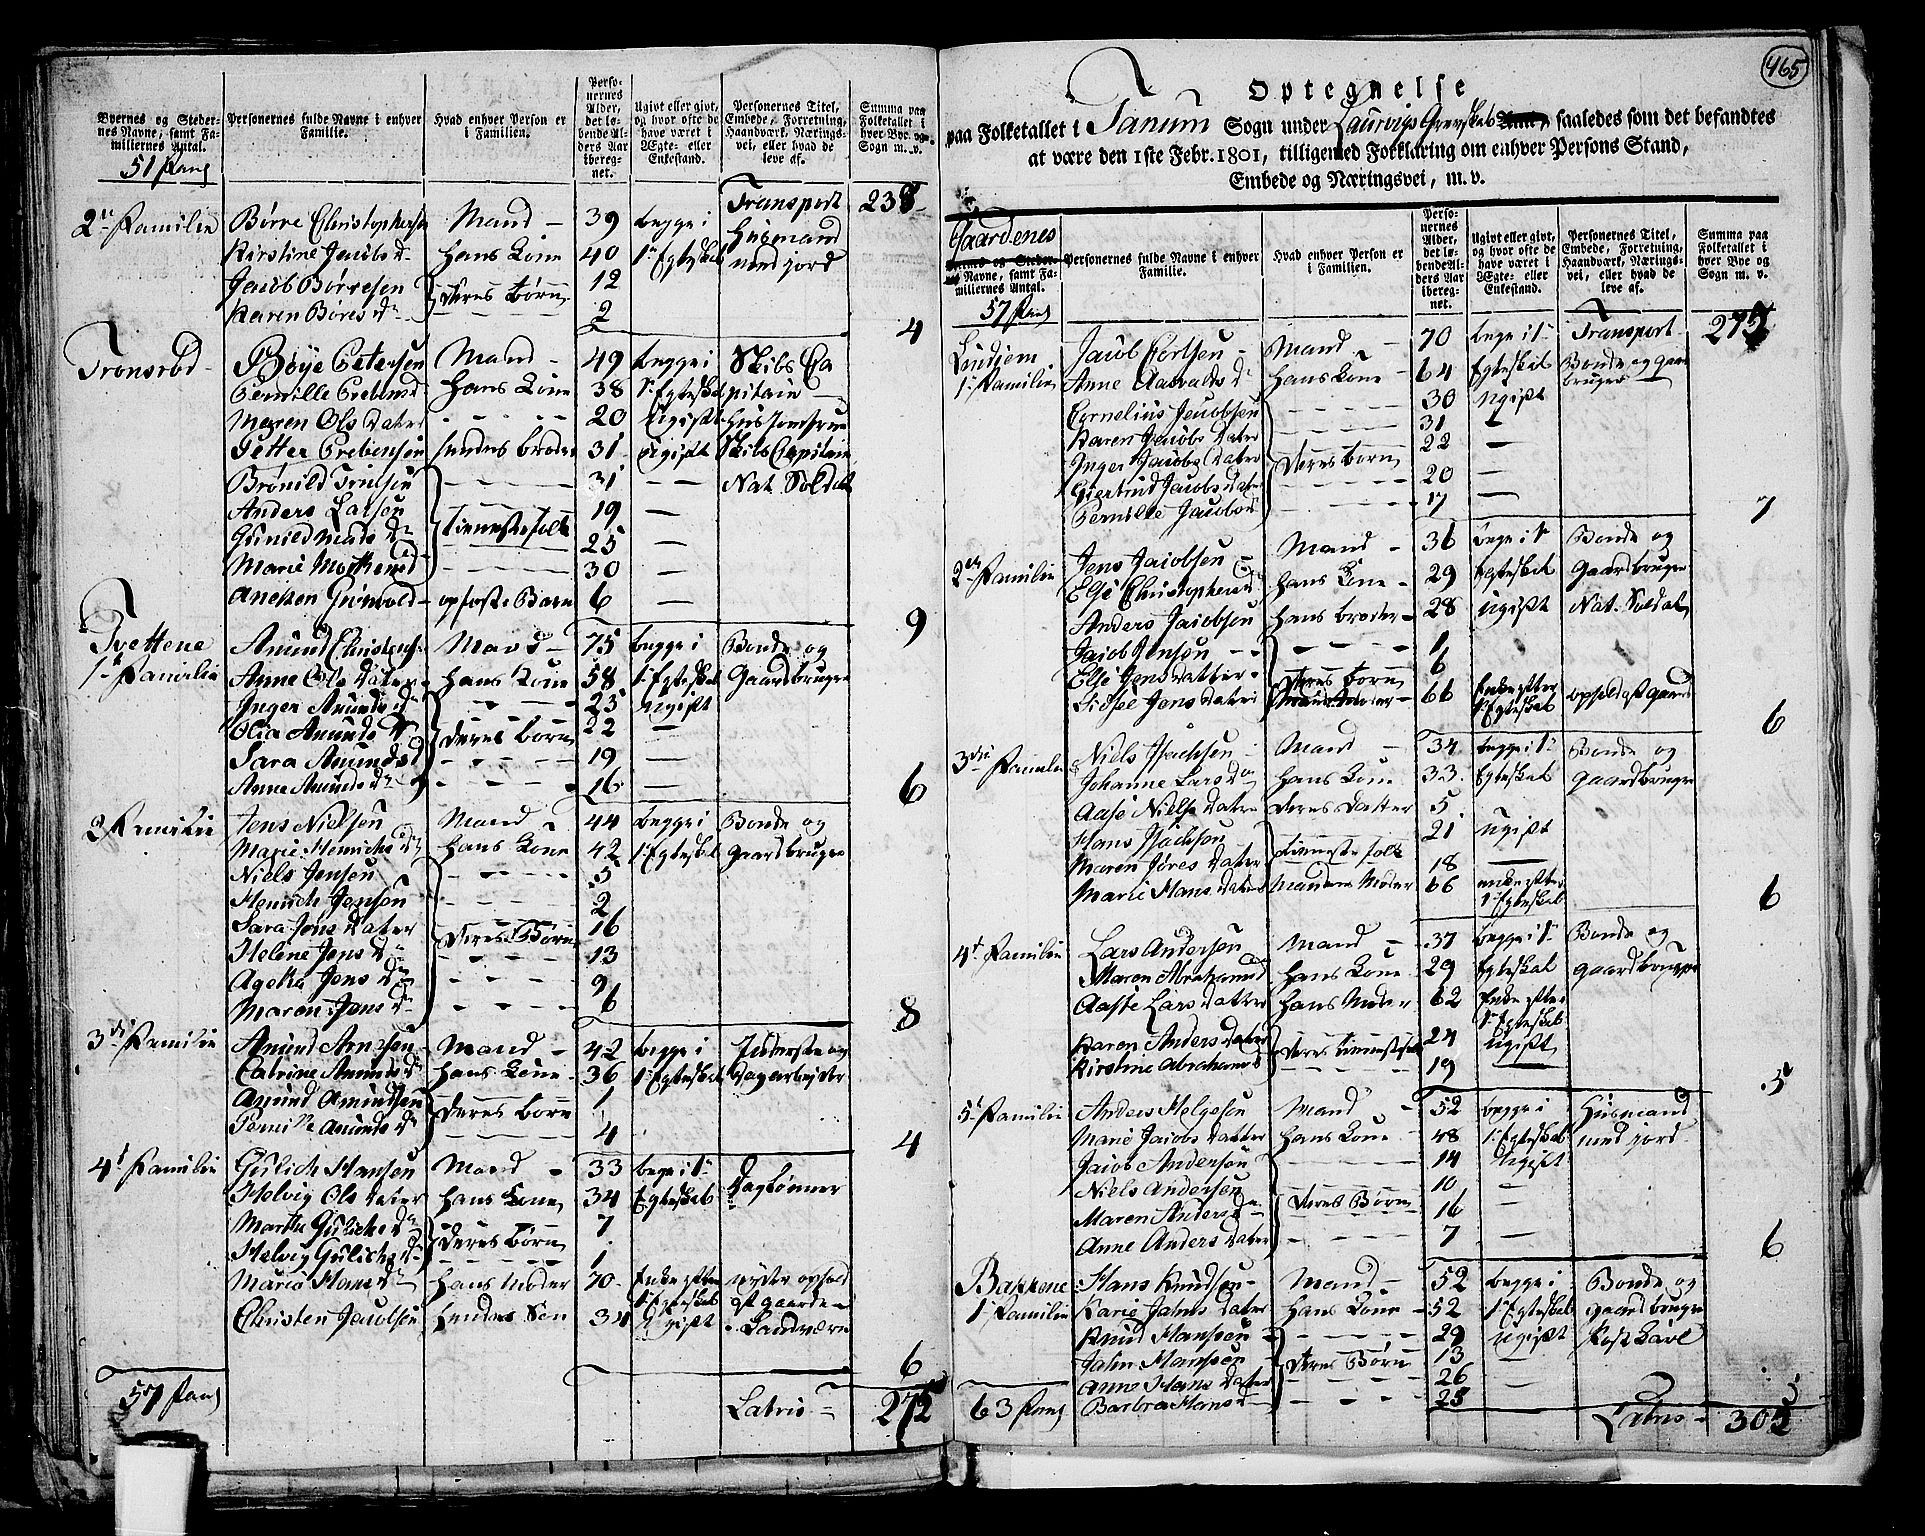 Byernes og Steder-
nes Navne, samt Fa-
miliernes Antal.
51 Fam
Personernes fulde Navne i enhver
Familie.
Hvad enhver Person er
i Familien.
Perso-
nernes
Alder,
det lø-
bende Al-
ders Aar
ibereg-
net.
Ugivt eller givt,
og hvor ofte de
have været i
Ægte- eller
Enkestand.
Personernes Titel,
Embede, Forretning,
Haandværk, Nærings-
vei, eller hvad de
leve af.
Summa paa
Folketallet i
hver Bye og
Sogn m. v.
Transport 238
2n Familie Børre Christophersen Mand 39 begge i Huusmand
Kirstine Jacobs D. Hans Kone 40 1e Egteskab med jord
Jacob Børresen Deres børn 12
Karen Børes D 2
4
Tronsrød Bøye Petersen Mand 49 begge i Skibs Ca
Pernille Prebens D Hans Kone 38 1e Egteskab pitain
Maren Ols Dater 20 Ugift Huusjomfrue
Petter Prebensen hendes broder 31 Ugift Skibs Capitain
Brønild 31 Nat. Soldat
Anders Larsen 19
Gunild Mads D tienestefolk 25
Marie 30
Anichen opfoste Barn 6
9
Tvettene Amund Christens. Mand 75 begge i Bonde og
1te Familie Anne Ols Dater Hans Kone 58 1e Egteskab Gaardbruger
Inger Amunds D 25 Ugift
Olia Amunds D Deres børn 22
Sara Amunds D 19
Anne Amunds D 16
6
2 Familie Jens Nielsen Mand 44 begge i Bonde og
Marie Henrichs D Hans Kone 42 1e Egteskab Gaardbruger
Niels Jensen 5
Henrich Jensen 2
Sara Jens Dater 16
Helene Jens D Deres Børn 13
Ageta Jens D 9
Maren Jens D 6
8
3di Familie Amund Arnesen Mand 42 begge i Inderste og
Catrine Amunds D Hans Kone 36 1e Egteskab Dagarbejder
Amund Amundsen Deres børn 1
Pernille Amunds D 4
4
4t Familie Gulich Hansen Mand 33 bege i 1te Daglønner
Helvig Ols Dater Hans Kone 34 Egteskab
Marthe Gulichs D Deres børn 7
Helvig Gulichs D 1
Marie Hans D Hans Moder 70 Enke efter nyder ophold
1e Egteskab af gaarden
Christen Jacobsen Hendes Søn 34 Ugift Landværn
6
57 Fam Latris 275
465
Optegnelse
paa Folketallet i Tanum Sogn under Laurvigs Grevskab Amt, saaledes som det befandtes
at være den 1ste Febr. 1801, tilligemed Forklaring om enhver Persons Stand,
Embede og Næringsvei, m. v.
Gaardenes
Byernes og Steder-
nes Navne, samt Fa-
miliernes Antal.
57 Fam
Personernes fulde Navne i enhver
Familie.
Hvad enhver Person er
i Familien.
Perso-
nernes
Alder,
det lø-
bende Al-
ders Aar
ibereg-
net.
Ugivt eller givt,
og hvor ofte de
have været i
Ægte- eller
Enkestand.
Personernes Titel,
Embede, Forretning,
Haandværk, Nærings-
vei, eller hvad de
leve af.
Summa paa
Folketallet i
hver Bye og
Sogn m. v.
Transport 275
Lindjem Jacob Mand 70 bege i 1te
1te Familie Anne D Hans Kone 64 Egteskab Bonde og gaard
Cornelius Jacobsen 30 Ugift bruger
Karen Jacobs Dater 31
Inger Jacobs Dater Deres børn 22
Giertrud Jacobs Dater 20
Pernille Jacobs D 17
7
2en Familie Jens Jacobsen Mand 36 bege i 1te Bonde og
Else Christophers D Hans Kone 29 Egteskab Gaardbruger
Anders Jacobsen Hans broder 28 Ugift Nat. Soldat
Jacob Jensen 1
Else Jens Datter Deres børn 6
Sidsel Jens Dater 66 Enke efter ophold af gaard
1 Egteskab
6
3die Familie Niels Isachsen Mand 34 begge i 1te Bonde og
Johanne Lars D Hans Kone 33 Egteskab gaardbruger
Aase Niels Dater Deres Datter 5
Hans Isachsen tienestefolk 21 Ugift
Maren Jøres Dater 18
Marie Hans Dater Mandens Moder 66 enke efter
1e Egteskab
6
4t Familie Lars Andersen Mand 37 begge i 1te Bonde og
Maren Abrahams D Hans Kone 29 Egteskab gaardbruger
Aaste Lars Datter Hans Moder 62 Enke efter
1e Egteskab
Karen Anders Dater Deres tienestefolk 24 Ugift
Kirstine Abrahams D 19
5
5t Familie Anders Helgesen Mand 52 begge i Huusmand
Marie Jacobs Datter Hans Kone 48 1e Egteskab med jord
Jacob Andersen 14 Ugift
Niels Andersen 10
Maren Anders D Deres Børn 16
Anne Anders Dater 7
6
Bakkene Hans Knudsen Mand 52 begge i Bonde og
1te Familie Karie Jahns Dater Hans Kone 52 1e Egteskab gaardbruger
Knud Hansen 29 Ugift
Jahn Hansen Deres Børn 13
Anne Hans Dater 26
Barbra Hans D 25
63 Fam Latris 305